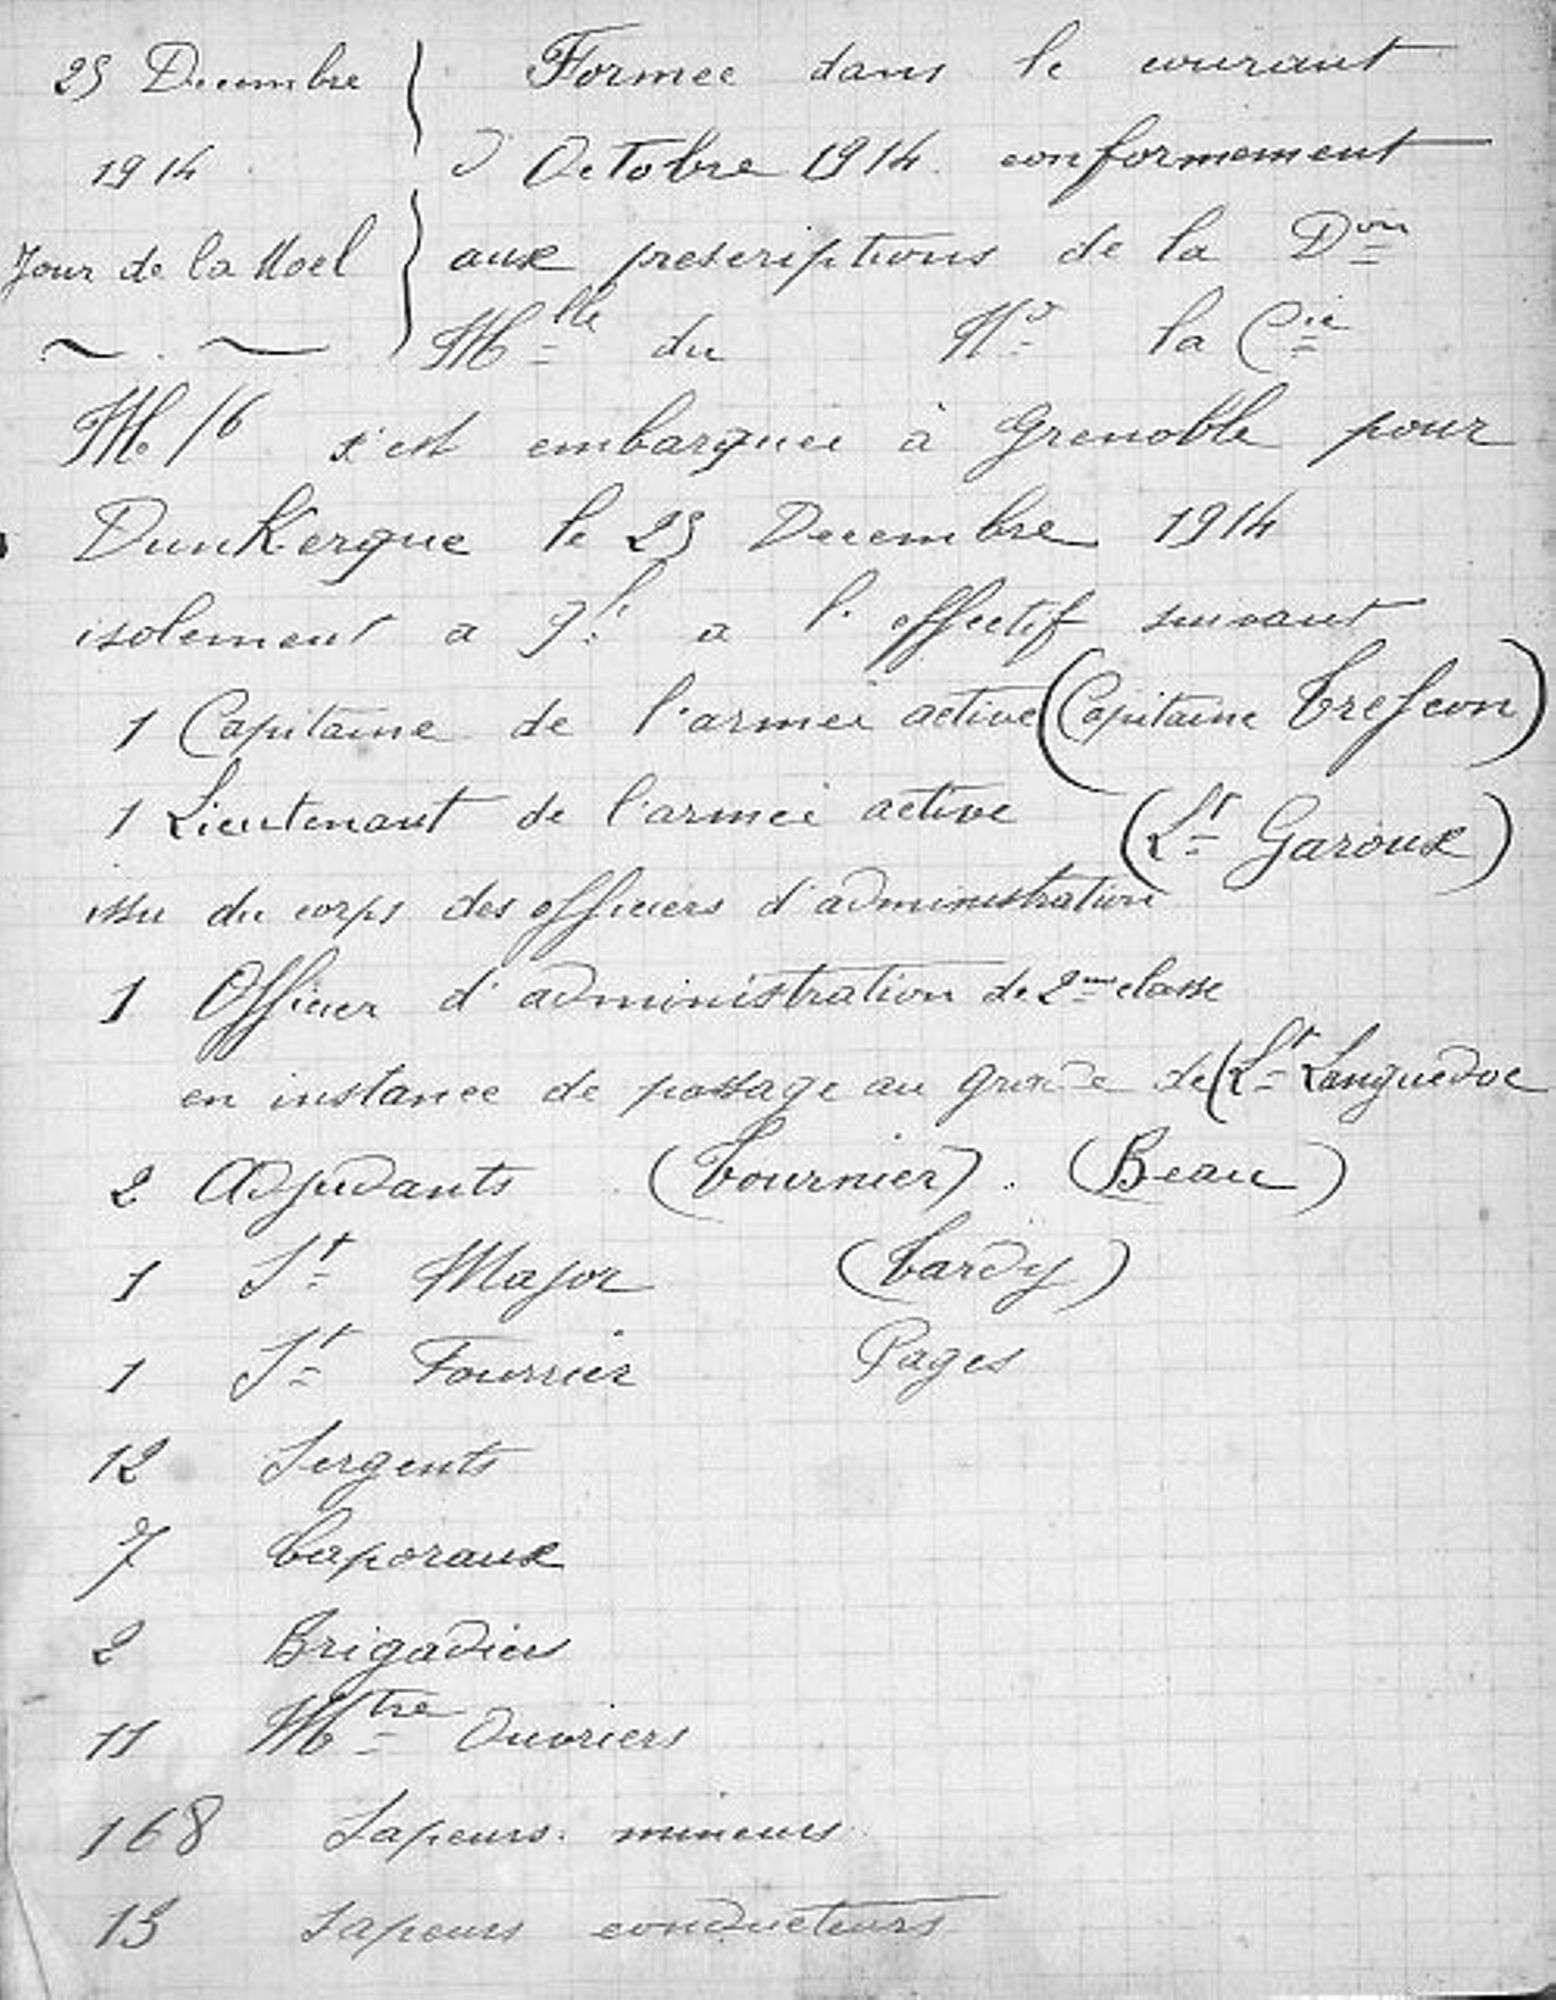 25 Decembre
1914
Jour de la Noel
Formee dans le courant
d Octobre 1914. conformement
aux prescriptions de la Don
Mlle du No la Cie
M/6 s'est embarquée à Grenoble pour
DunKerque le 25 Decembre 1914
isolement a 9h. a l'effectif suivant
1 Capitaine de l'armée active (Capitaine Trefcon)
1 Lieutenant de l'armée active (Lt Garoux)
issu du corps des officiers d'administration
1 Officier d'administration de 2me classe
en instance de passage au grade de (Lt Languedoc
2 Adjudants (Tournier). (Beau)
1 St Major (Tardy)
1 St Fourrier Pages
12 Sergents
7 Caporaux
2 Brigadiers
11 Mtre Ouvriers
168 Sapeurs. mineurs
15 Sapeurs conducteurs